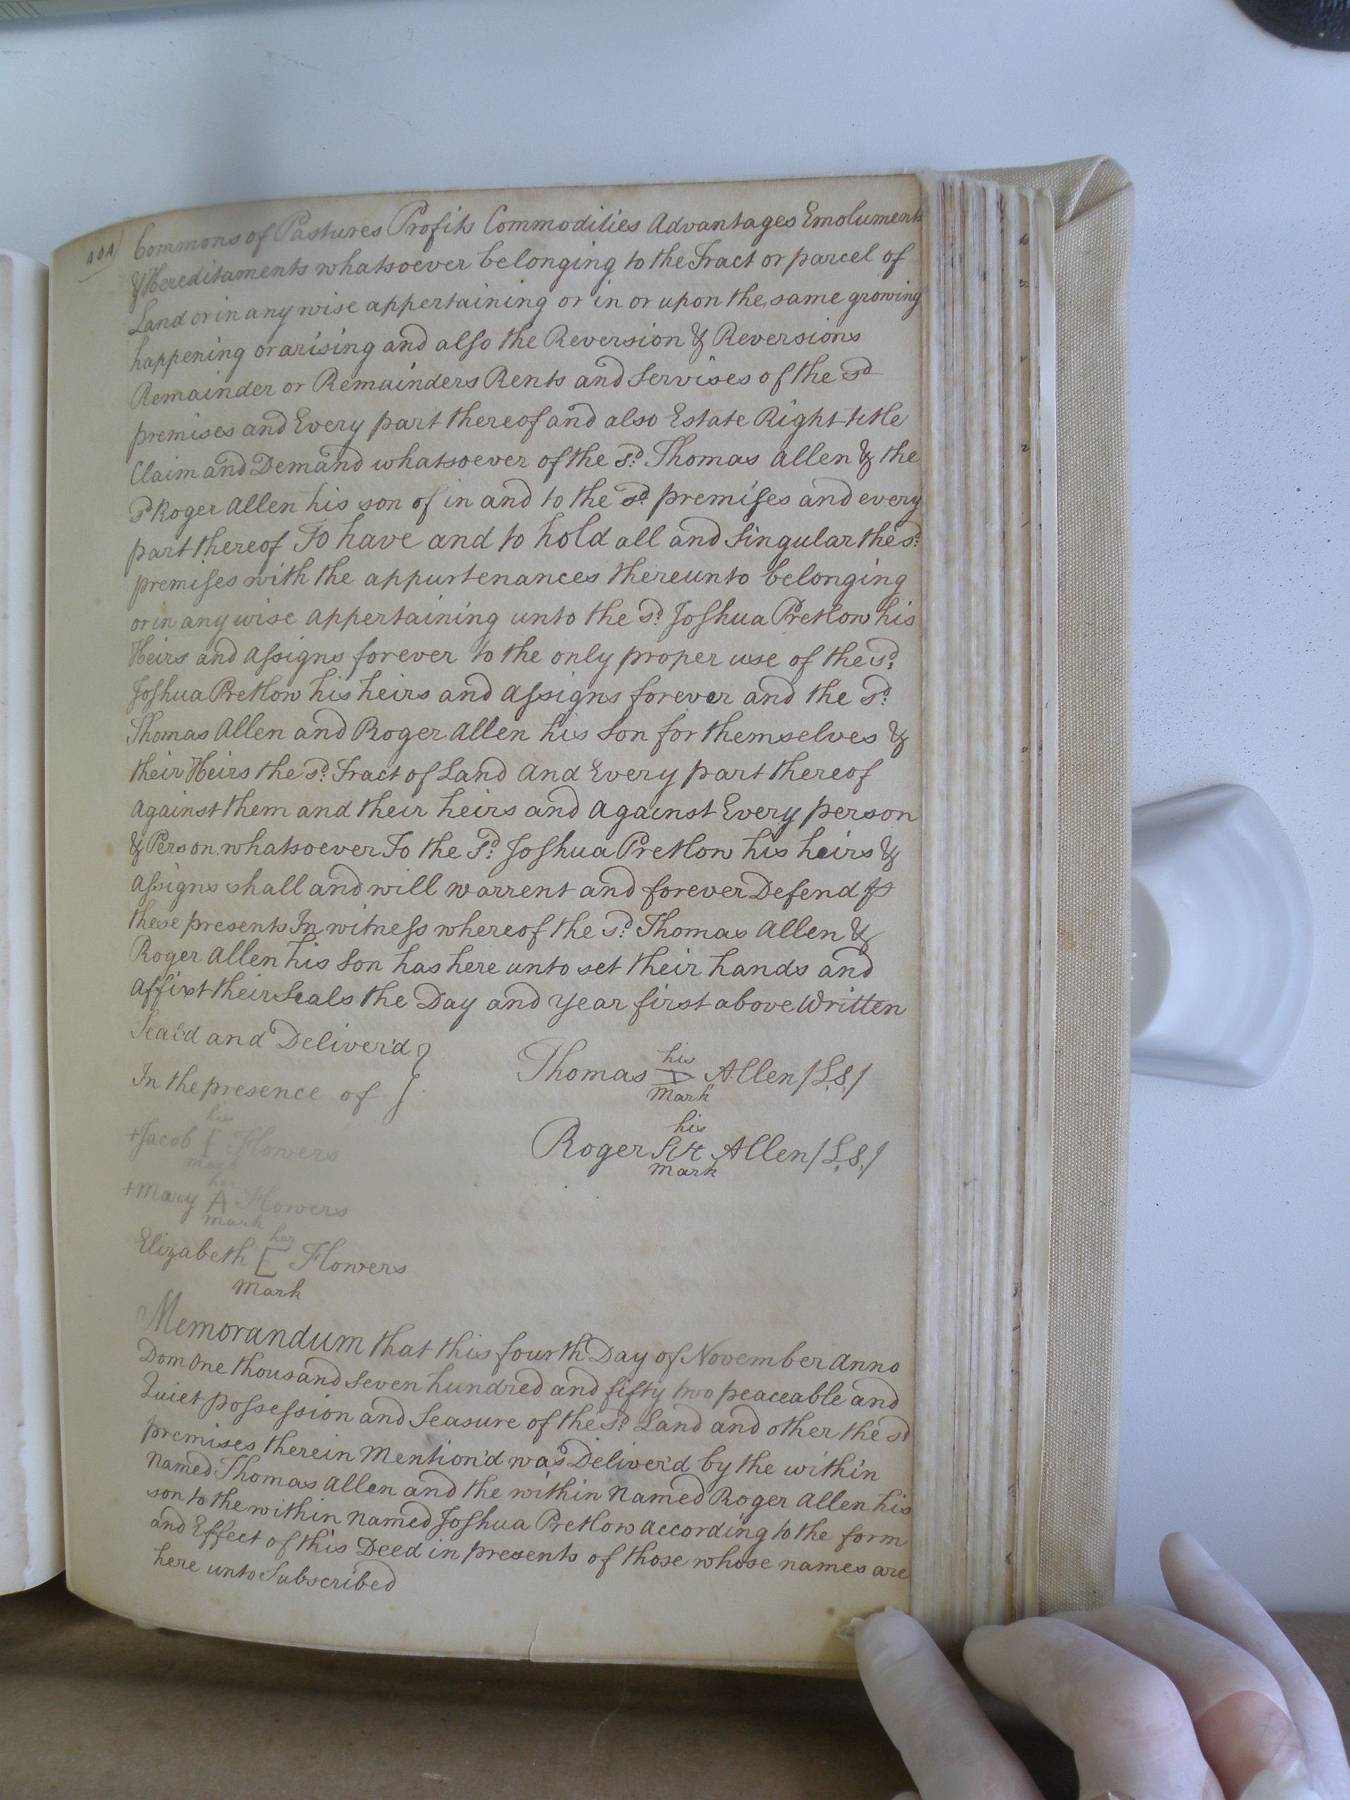 404
Commons of Pastures Profits Commodities Advantages Emoluments
& Hereditaments whatsoever belonging to the Tract or parcel of
Land or in any wise appertaining or in or upon the same growing
happening or arising and also the Reversion & Reversions
Remainder or Remainders Rents and Servises of the sd
premises and Every part thereof and also Estate Right title
Claim and Demand whatsoever of the sd. Thomas Allen & the
sd Roger Allen his son of in and to the sd. premises and every
part thereof To have and to hold all and Singular the sd.
premises with the appurtenances thereunto belonging
or in any wise appertaining unto the sd. Joshua Pretlow his
Heirs and assigns forever to the only proper use of the sd.
Joshua Pretlow his heirs and assigns forever and the sd.
Thomas Allen and Roger Allen his Son for themselves &
their Heirs the sd. Tract of Land And Every part thereof
against them and their heirs and against Every person
& Person whatsoever To the sd. Joshua Pretlow his heirs &
assigns shall and will warrent and forever Defend
these presents In witness whereof the sd. Thomas Allen &
Roger Allen his Son has here unto set their hands and
affixt their Seals the Day and year first above Written
Seal'd and Deliver'd }
In the presence of }
his
Thomas Allen /L.S./
Mark
his
Roger Allen /L.S./
mark
his
+Jacob Flowers
mark
her
+Mary A Flowers
mark
her
Elizabeth E Flowers
mark
Memorandum that this fourth Day of November Anno
Dom One thousand Seven hundred and fifty two peaceable and
Quiet possession and Seasure of the sd. Land and other the sd
premises therein Mention'd was Deliver'd by the within
named Thomas Allen and the within Named Roger Allen his
son to the within named Joshua Pretlow according to the form
and Effect of this Deed in presents of those whose names are
here unto Subscribed